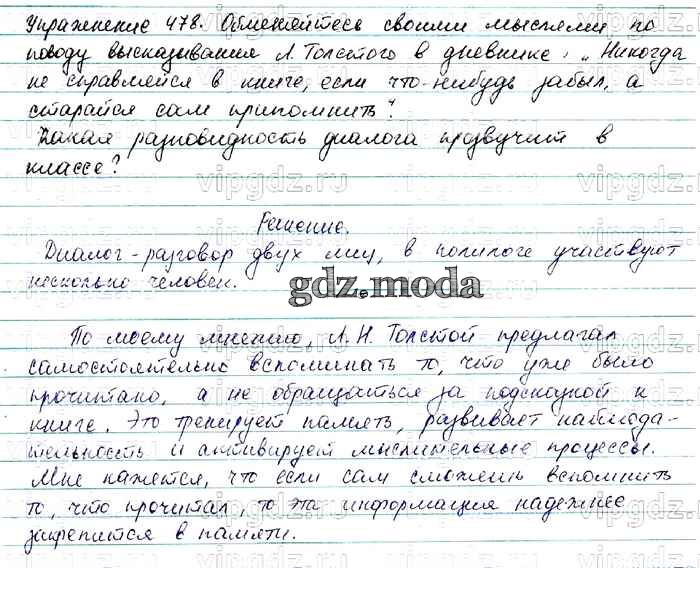 Упражнение 478. Обменяйтесь своими мыслями по
поводу высказывания Л. Толстого в дневнике: „Никогда
не справляйся в книге, если что-нибудь забыл, а
старайся сам припомнить".
Какая разновидность диалога прозвучит в
классе?
vipgdz.ru vipgdz.ru vipgdz.ru
Решение.
Диалог - разговор двух лиц, в полилоге участвуют
несколько человек.
gdz.moda
По моему мнению, Л. Н. Толстой предлагал
самостоятельно вспоминать то, что уже было
прочитано, а не обращаться за подсказкой к
книге. Это тренирует память, развивает наблюда-
тельность и активирует мыслительные процессы.
Мне кажется, что если сам сможешь вспомнить
то, что прочитал, то эта информация надежнее
закрепится в памяти.